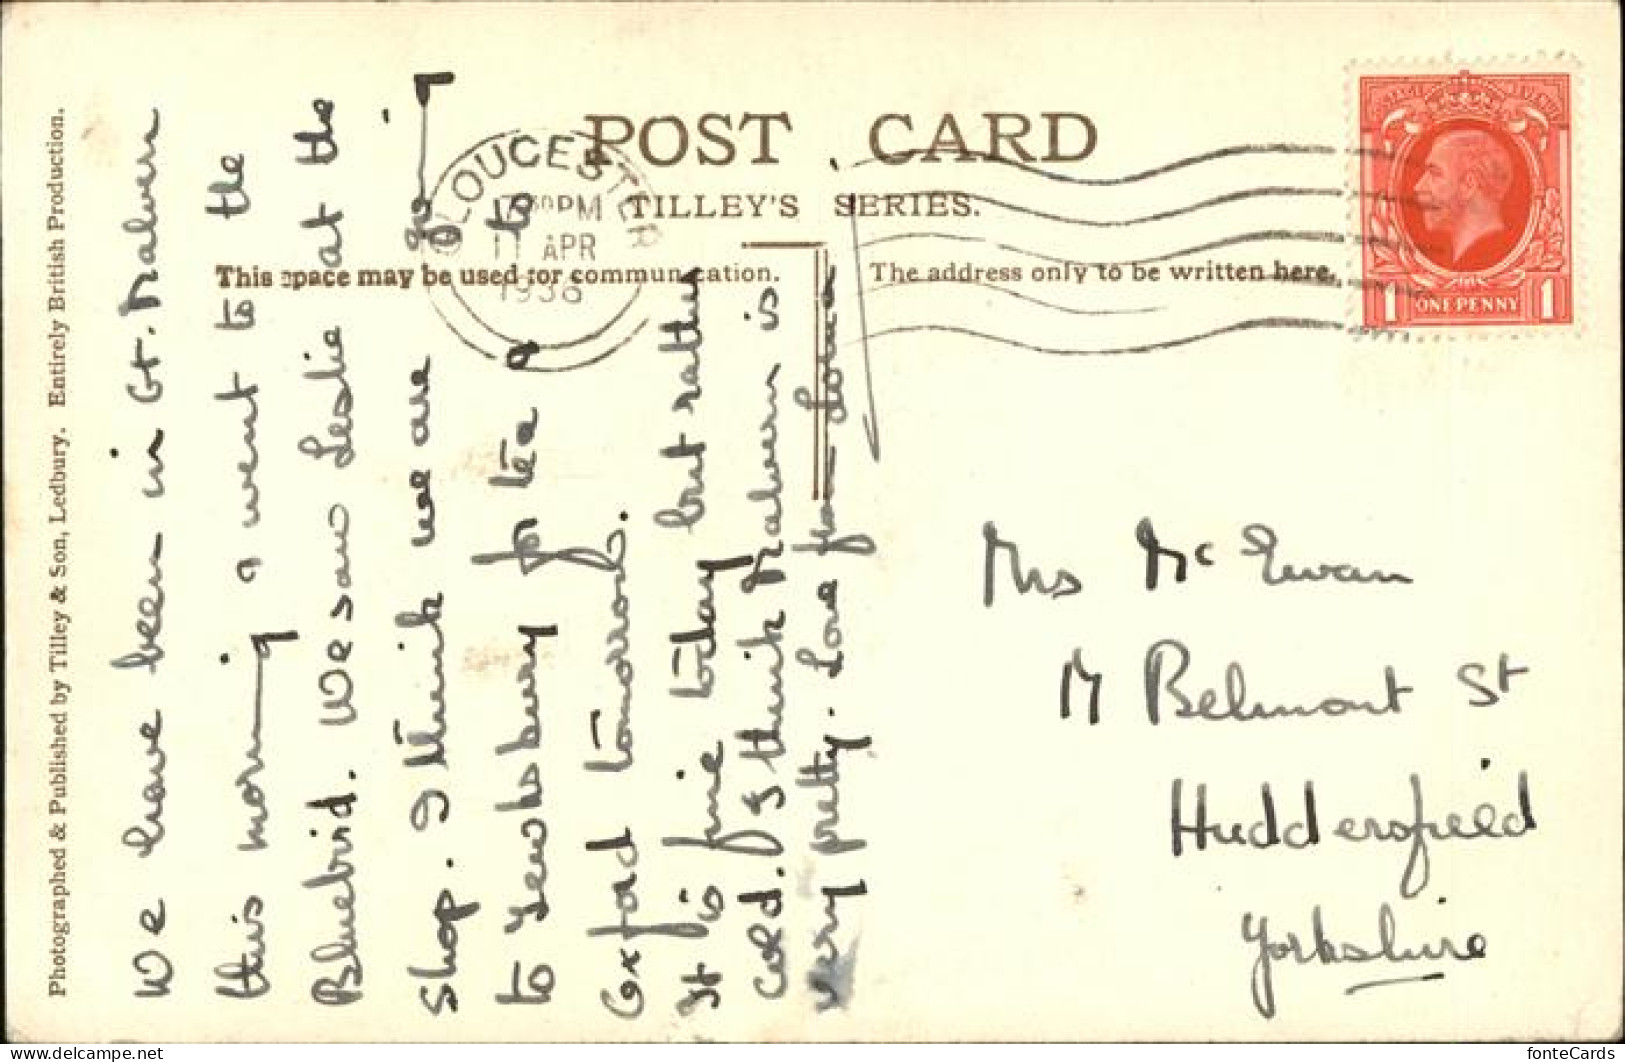 POST CARD
TILLEY'S SERIES.
This space may be used for communication.
The address only to be written here.
GLOUCESTER
PM
11 APR
1936
1 ONE PENNY 1
Photographed & Published by Tilley & Son, Ledbury. Entirely British Production.
We have been in Gt. Malvern
this morning & went to the
Bluebird. We saw Leslie at the
shop. I think we are going
to Tewksbury for tea & to
Oxford tomorrow.
It is fine today but rather
cold. I think Malvern is
very pretty. Love from
Mrs McEwan
Belmont St
Huddersfield
Yorkshire
fonteCards